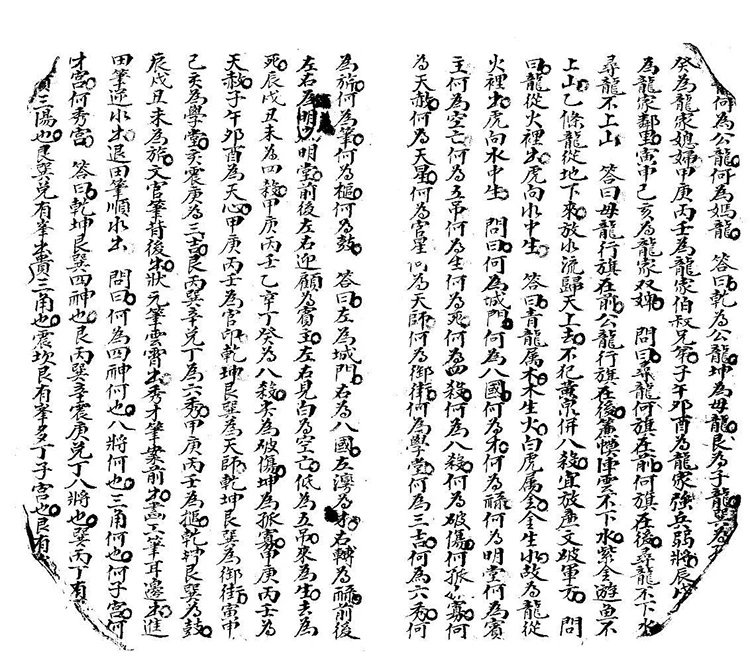 何為公龍何為媽龍　答曰乾為公龍坤為母龍艮為子龍巽為
癸為龍家媳婦甲庚丙壬為龍家伯叔兄弟子午卯酉為龍家強兵弱將辰戌
為龍家鄰里寅申己亥為龍家双婢　問曰尋龍何旗在前何旗在後尋龍不下水
尋龍不上山　答曰母龍行旗在前公龍行旗在後　雲不下水紫金遊魚不
上山乙條龍從地下來放水流歸天上去不犯黃泉併八殺宜放庫文破軍方　問
曰龍從火裡出虎向水中生　答曰青龍属木木生火白虎属金金生水故為龍從
火裡出虎向水中生　問曰何為城門何為八國何為禾何為祿何為明堂何為賓
主何為空亡何為五吊何為生何為死何為四殺何為八殺何為破傷何孤何寡何
為天赦何為天星何為宮星何為天師何為御街何為學堂何為三吉何為六秀何
為旂何為筆何為槌何為鼓　答曰左為城門右為八國左　為才右轉為祿前後
左右為明明堂前後左右迎顧為賓主左右見白為空亡低為五吊來為生去為
死辰戌丑未為四殺甲庚丙壬乙辛丁癸為八殺去為破傷坤為孤寡甲庚丙壬為
天赦子午卯酉為天心甲庚丙壬為宮印乾坤艮巽為天師乾坤艮巽為御街寅申
己亥為學堂亥震庚為三吉艮丙巽辛兌丁為六秀甲庚丙壬為搥乾坤艮巽為鼓
辰戌丑未為旂文官筆背後出狀元筆雲霄出秀才筆案前出畫工筆耳邊出進
田筆逆水出退田筆順水出　問曰何為四神何也八將何也三角何也何子宮何
才宮何秀宮　答曰乾坤艮巽四神也艮丙巽辛震庚兌丁八將也巽丙丁有
三陽也艮巽兌有峯出貴三角也震坎艮有峯多丁子宮也艮有